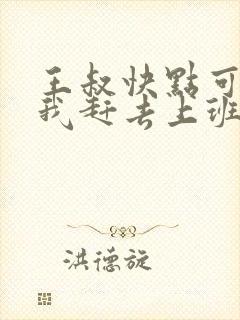 王叔快點可
我赶去上班
洪德旋